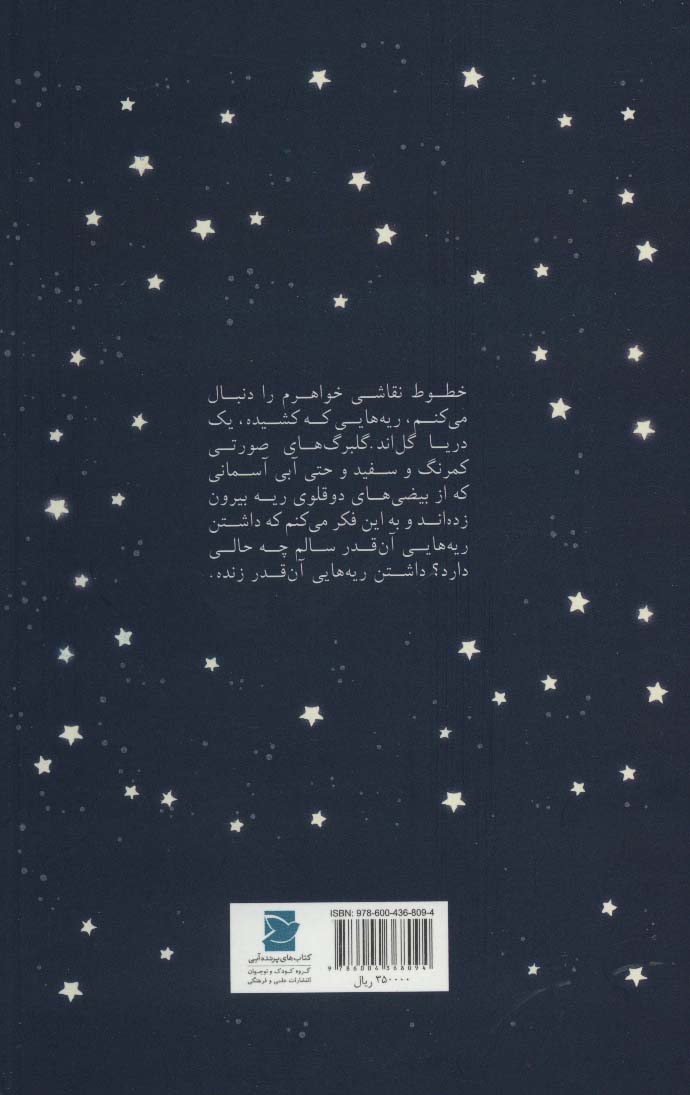 خطوط نقاشی خواهرم را دنبال
می‌کنم، ریه‌هایی که کشیده، یک
دریا گل‌اند. گلبرگ‌های صورتی
کمرنگ و سفید و حتی آبی آسمانی
که از بیضی‌های دوقلوی ریه بیرون
زده‌اند و به این فکر می‌کنم که داشتن
ریه‌هایی آن‌قدر سالم چه حالی
دارد؟ داشتن ریه‌هایی آن‌قدر زنده.
ISBN: 978-600-436-809-4
کتاب‌های پرنده آبی
گروه کودک و نوجوان
انتشارات علمی و فرهنگی
9 786004 368094
۳۵۰۰۰۰ ریال